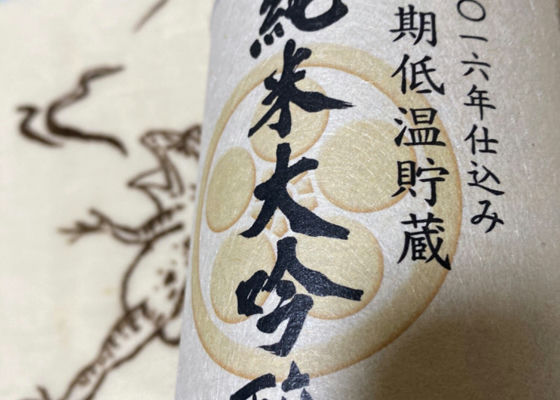 〇一六年仕込み
期低温貯蔵
純米大吟醸